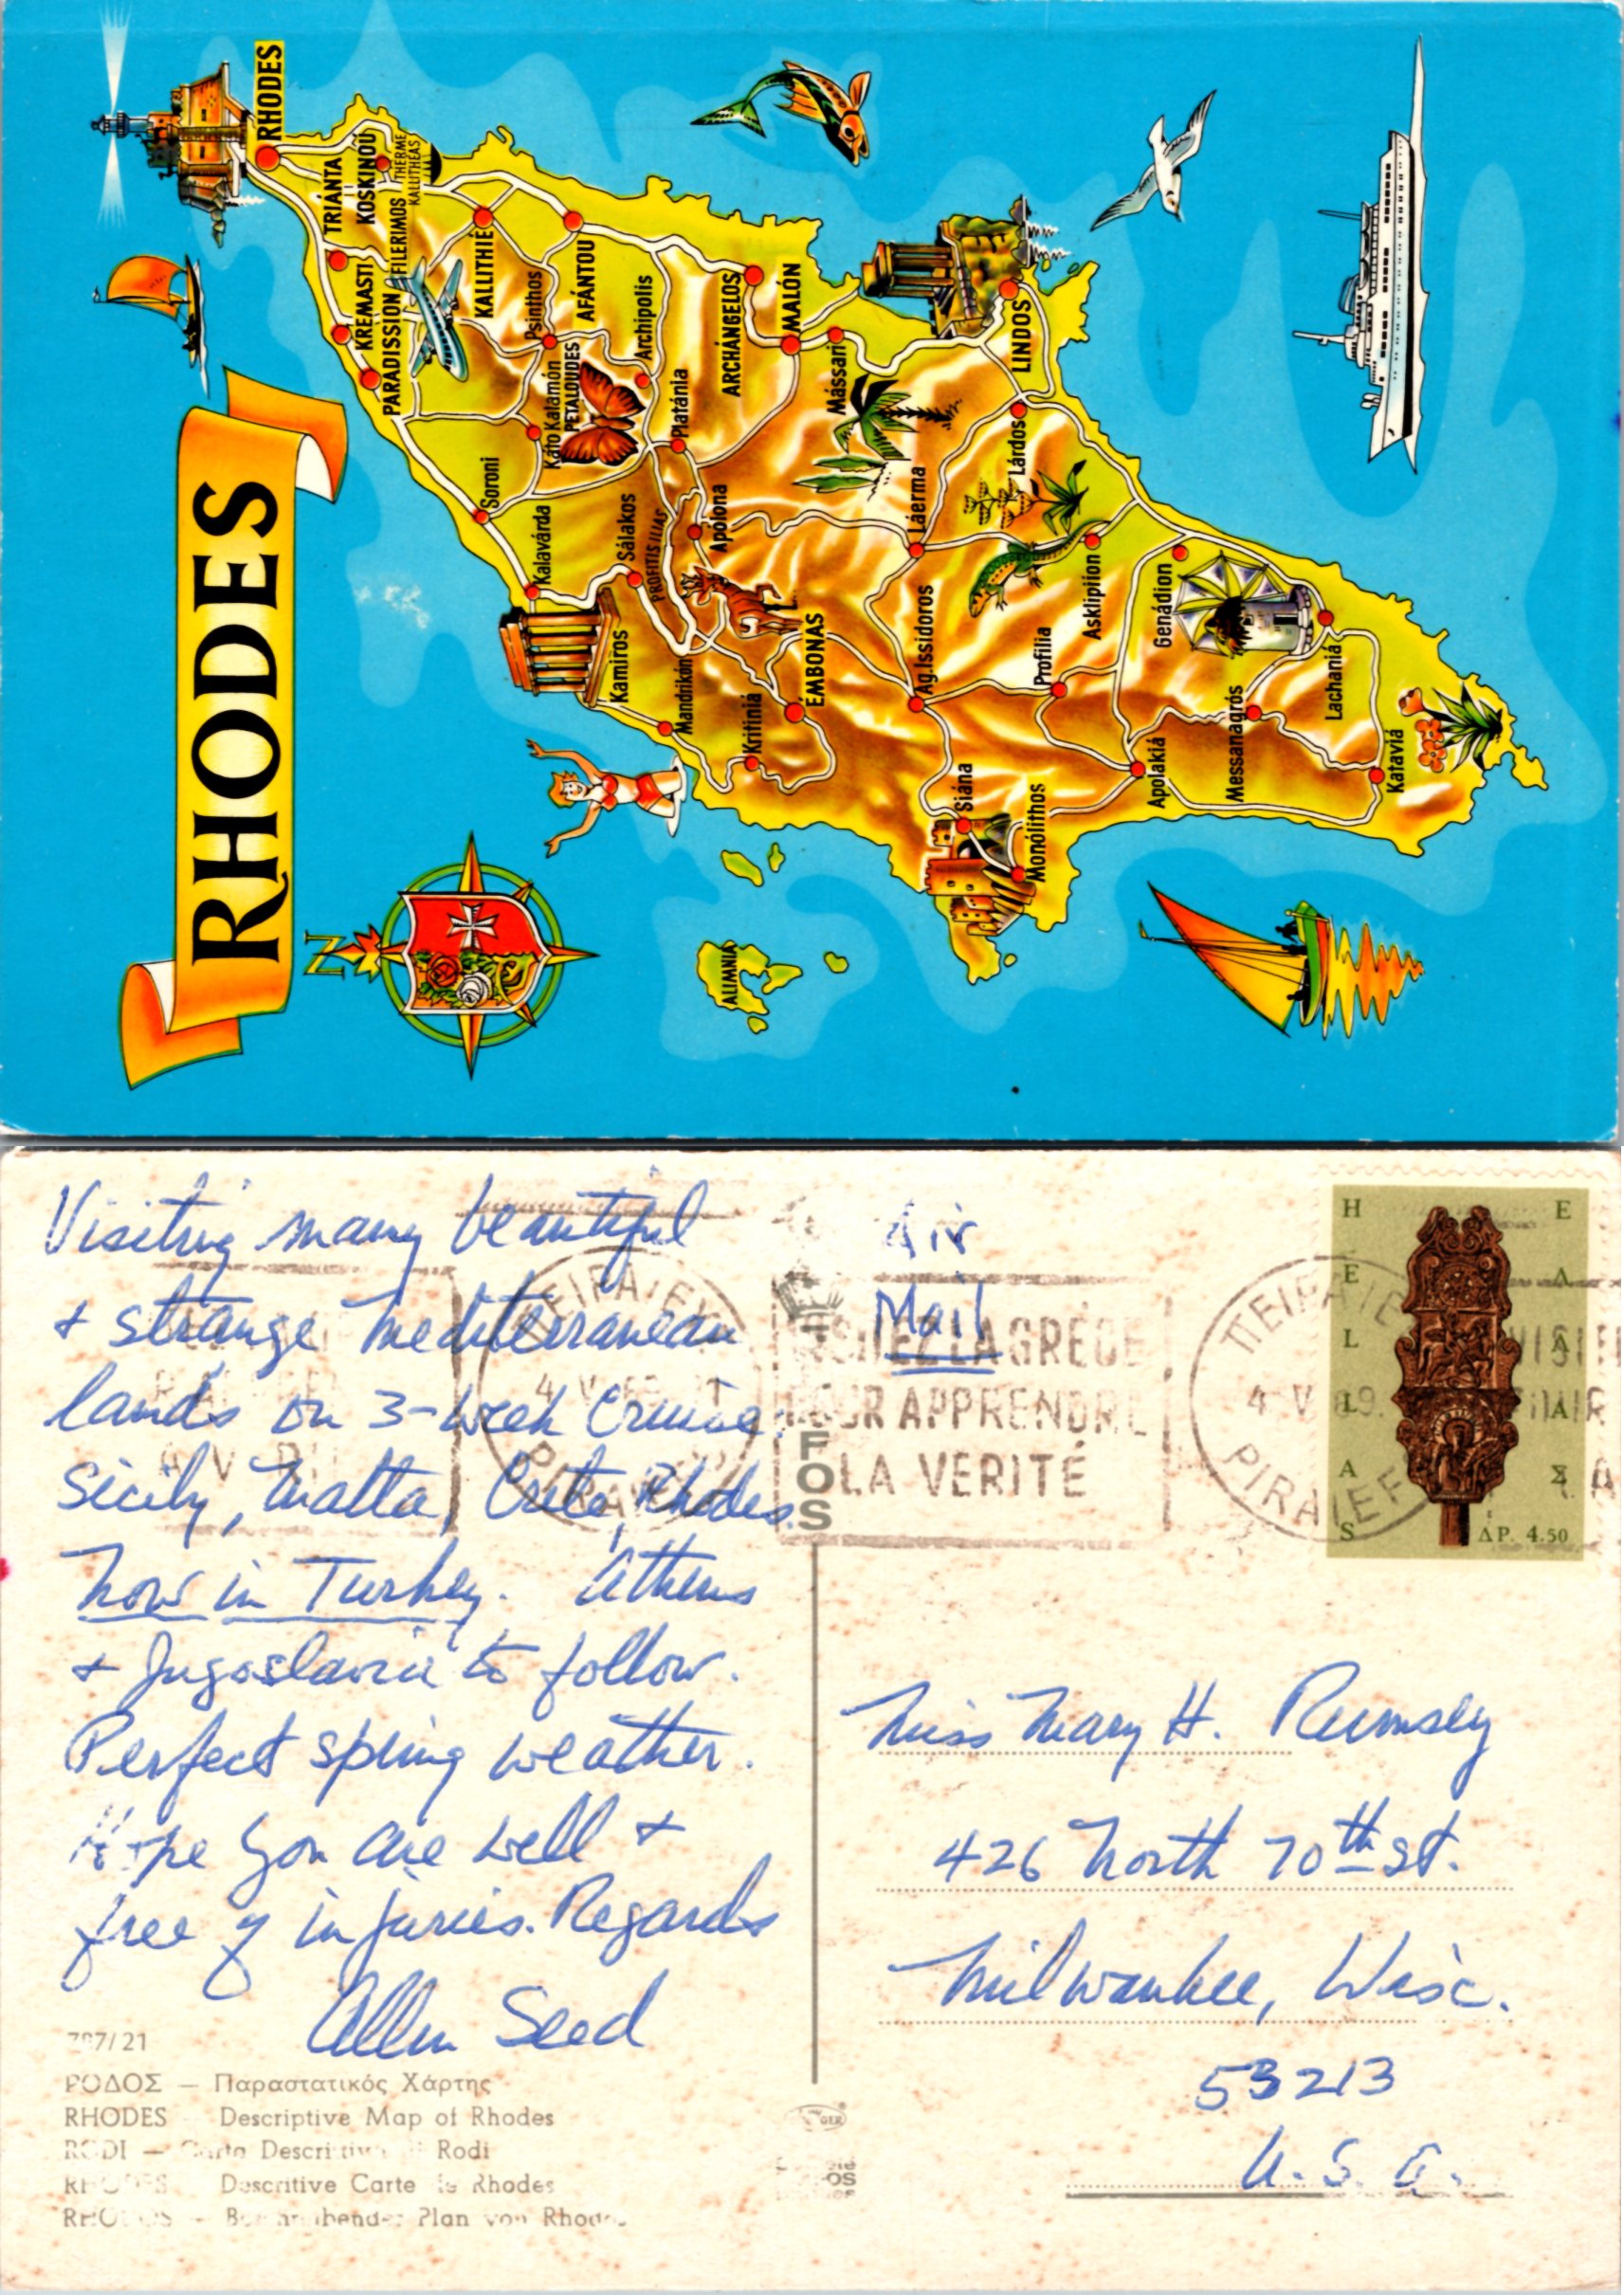 RHODES
RHODES
TRIÁNTA
KOSKINOÚ
THERME
KALLITHEAS
FILERIMOS
KREMASTI
PARADISSION
KALLITHIÉ
Psinthos
AFÁNTOU
Archipolis
ARCHÁNGELOS
MALÓN
Mássari
LINDOS
Káto Kalamón
PETALOUDES
Platánia
Soroni
Kalavárda
Sálakos
PROFITIS ILIAS
Apólona
Láerma
Lárdos
Kamiros
Mandrikón
Kritiniá
ÉMBONAS
Ag.Issidoros
Profilia
Asklipiion
Genádion
Lachaniá
Messanagrós
Kataviá
Apolakiá
Siána
Monólithos
ALIMNIA
N
Visiting many beautiful
& strange Mediterranean
lands on 3-week Cruise.
Sicily, Malta, Crete, Rhodes.
Now in Turkey. Athens
& Jugoslavia to follow.
Perfect spring weather.
Hope you are well &
free of injuries. Regards
Allen Seed
Air
Mail
HELLAS
ΕΛΛΑΣ
ΔΡ. 4.50
ΠΕΙΡΑΙΕΥ
4 V 69
PIRAIEF
LA GRECE
POUR APPRENDRE
LA VERITÉ
FOS
Miss Mary H. Rumsey
426 North 70th St.
Milwaukee, Wisc.
53213
U. S. A.
787/21
ΡΟΔΟΣ — Παραστατικός Χάρτης
RHODES Descriptive Map of Rhodes
RODI — Carta Descrittiva di Rodi
RHODES Descritive Carte de Rhodes
RHODOS - Beschreibender Plan von Rhodos